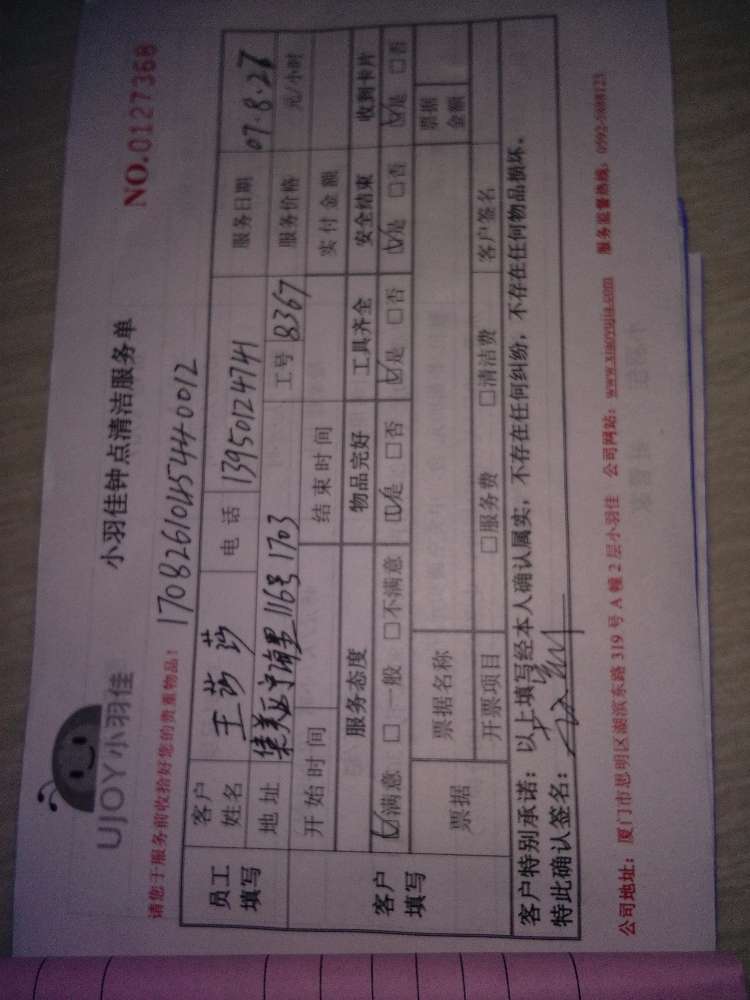 UJOY小羽佳
小羽佳钟点清洁服务单
NO.0127368
请您于服务前收拾好您的贵重物品！
1708261045440012
员工填写 客户姓名 王莎莎 电话 13950124741 服务日期 07.8.27
地址 集美区宁海里116号1703 工号 8367 服务价格 元/小时
开始时间 结束时间 实付金额
客户填写 服务态度 物品完好 工具齐全 安全结束 收到卡片
☑满意 □一般 □不满意 ☑是 □否 ☑是 □否 ☑是 □否 ☑是 □否
票据 票据名称 票据金额
开票项目 □服务费 □清洁费 客户签名
客户特别承诺：以上填写经本人确认属实，不存在任何纠纷，不存在任何物品损坏。
特此确认签名：
公司地址：厦门市思明区湖滨东路319号A幢2层小羽佳 公司网站：www.xiaoyujia.com 服务监督热线：0592-5688123